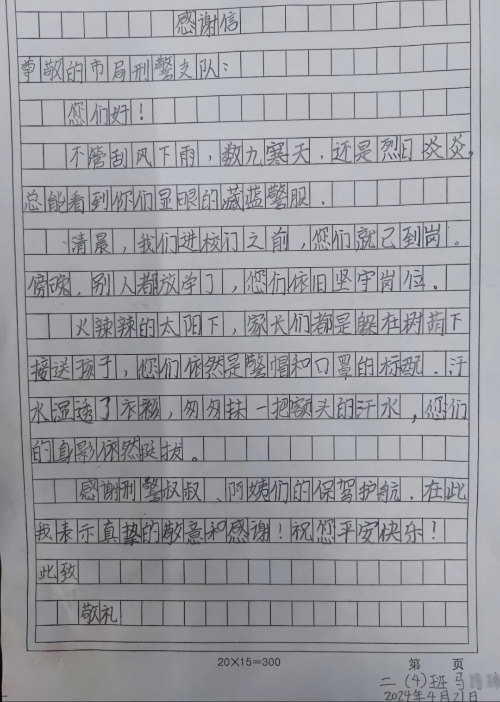 感谢信
尊敬的市局刑警支队：
您们好！
不管刮风下雨，数九寒天，还是烈日炎炎，
总能看到你们显眼的藏蓝警服．
清晨，我们进校门之前，您们就已到岗。
傍晚，别人都放学了，您们依旧坚守岗位。
火辣辣的太阳下，家长们都是躲在树荫下
接送孩子，您们依然是警帽和口罩的标配．汗
水湿透了衣衫，匆匆抹一把额头的汗水，您们
的身影依然挺拔。
感谢刑警叔叔、阿姨们的保驾护航，在此
我表示真挚的敬意和感谢！祝您平安快乐！
此致
敬礼
20×15=300
第 页
二（4）班马
2024年4月21日